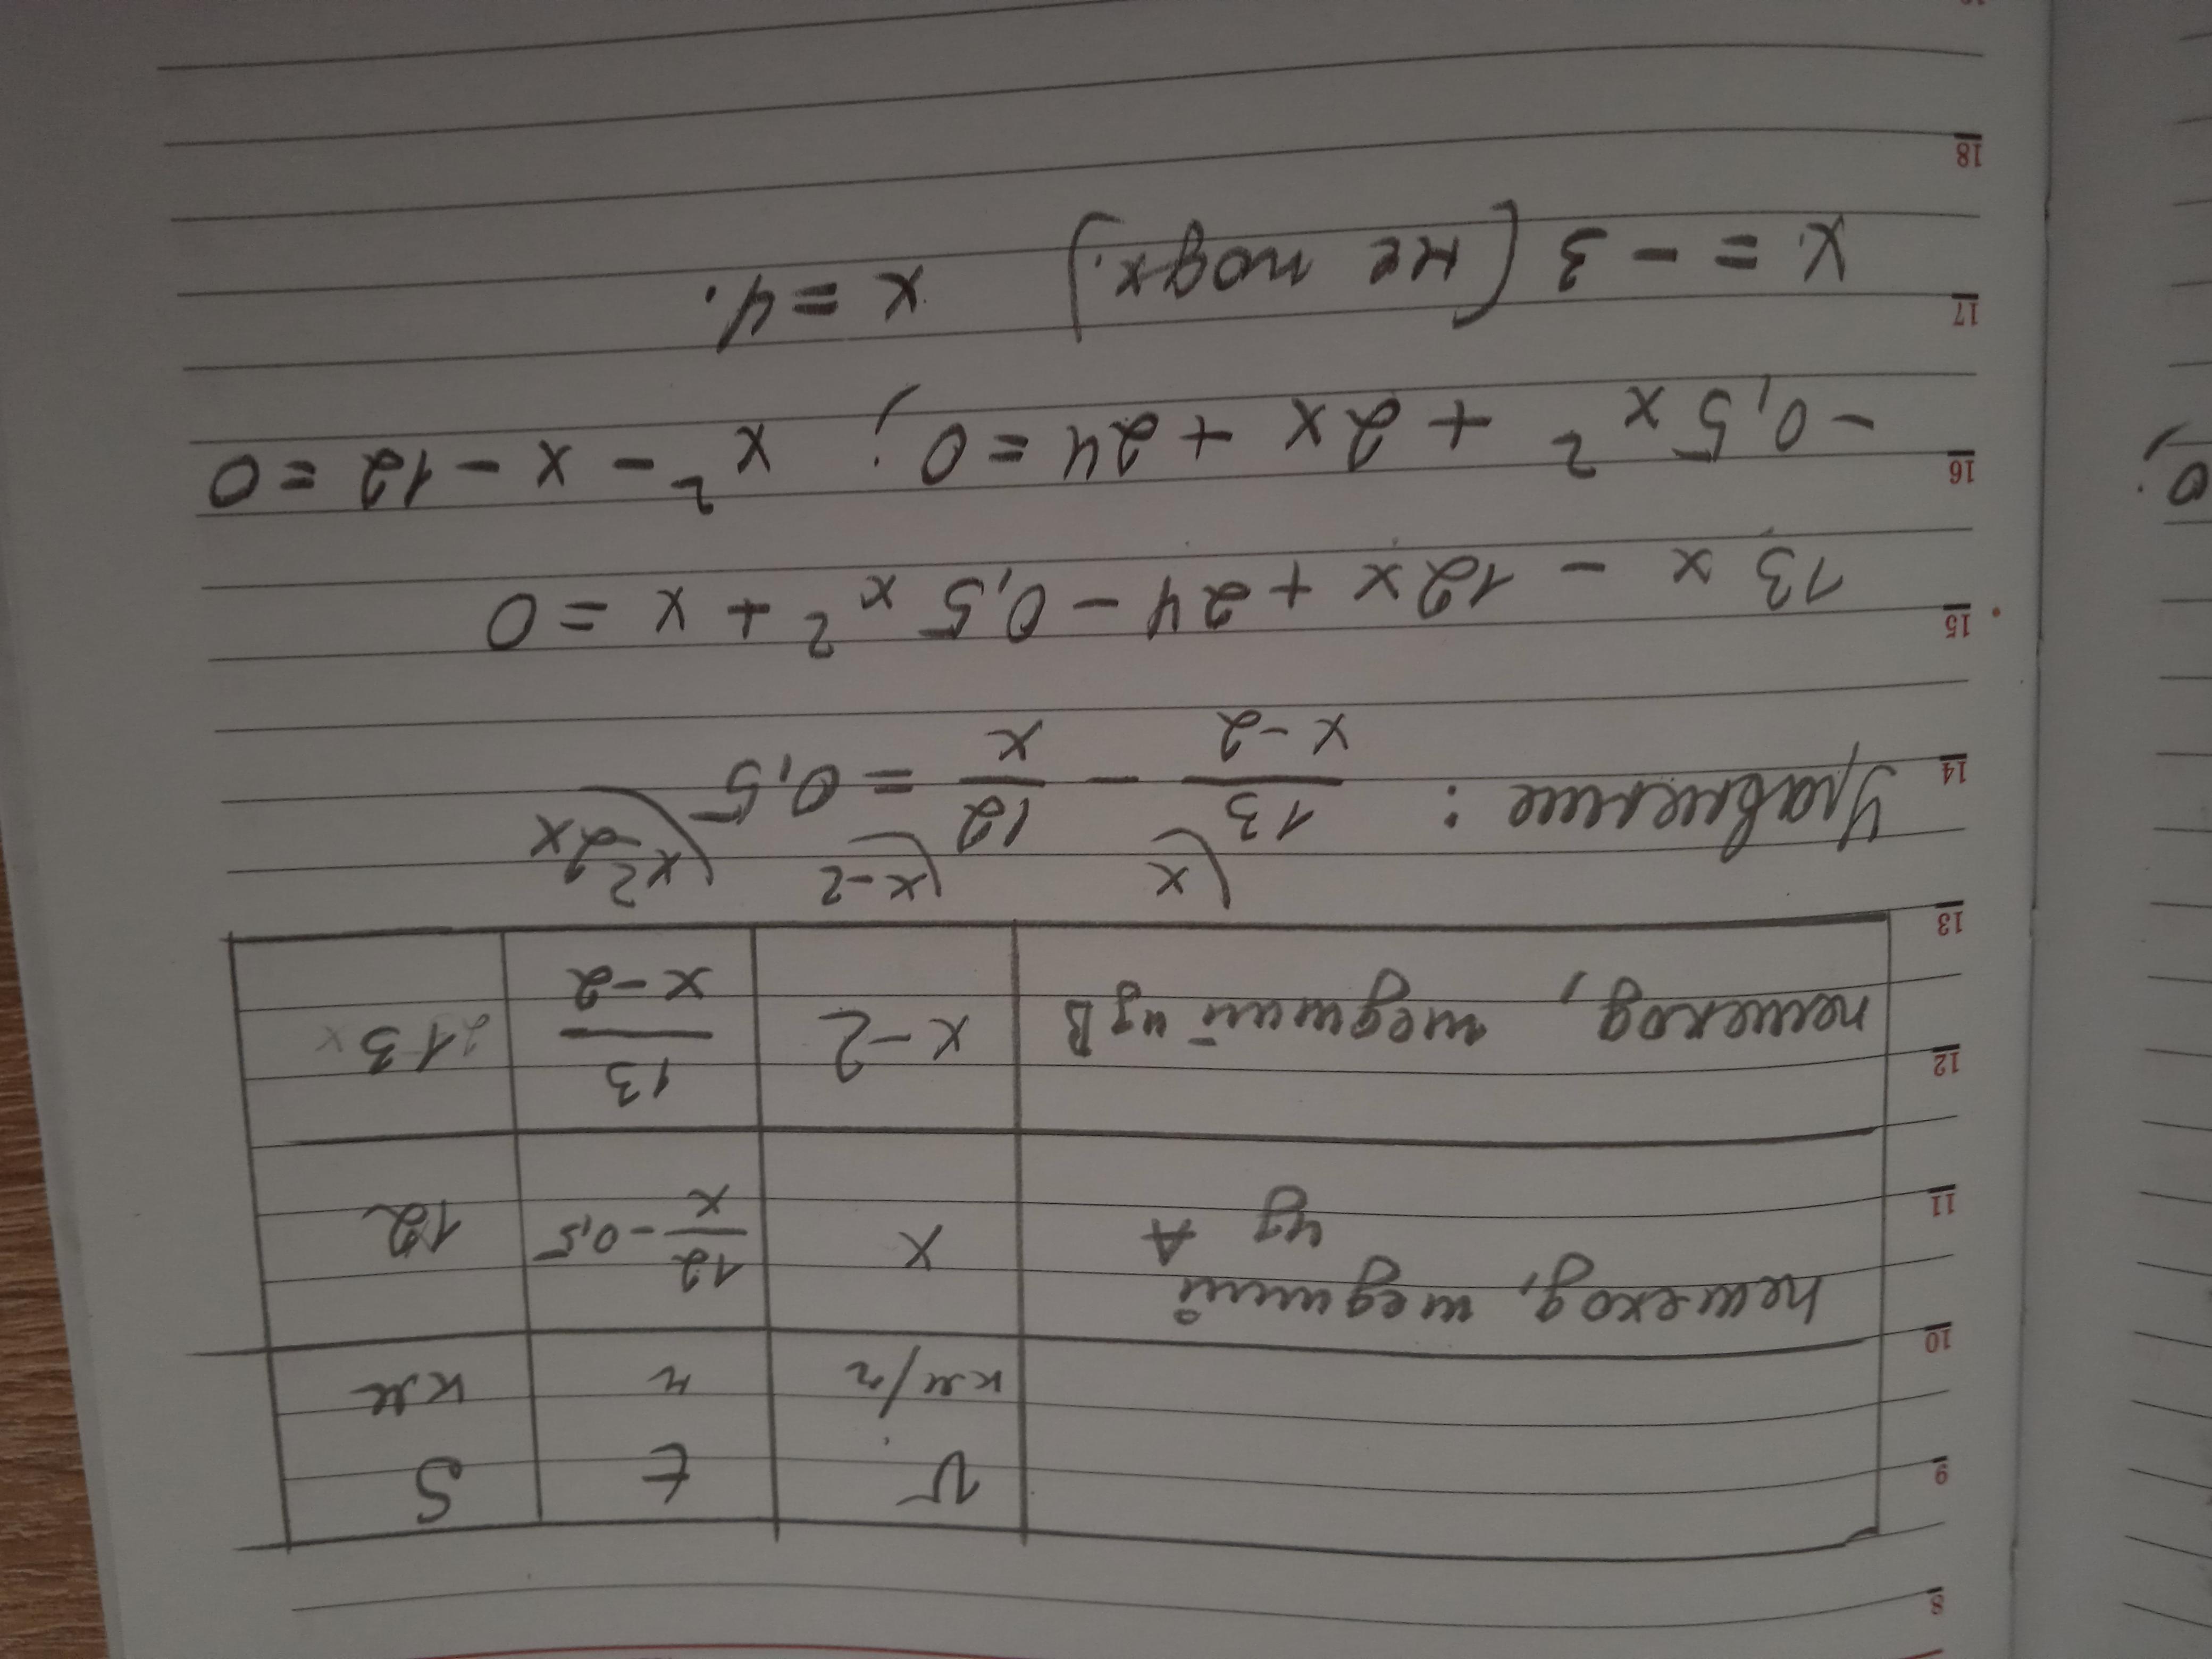 8
9
10
11
12
13
14
15
16
17
18
v t S
км/ч ч км
пешеход, шедший x 12/x - 0,5 12
из A
пешеход, шедший из B x - 2 13/(x - 2) 13
(x (x-2 (x² - 2x
Уравнение: 13/(x - 2) - 12/x = 0,5
13x - 12x + 24 - 0,5x² + x = 0
-0,5x² + 2x + 24 = 0; x² - x - 12 = 0
x = -3 (не подх.) x = 4.